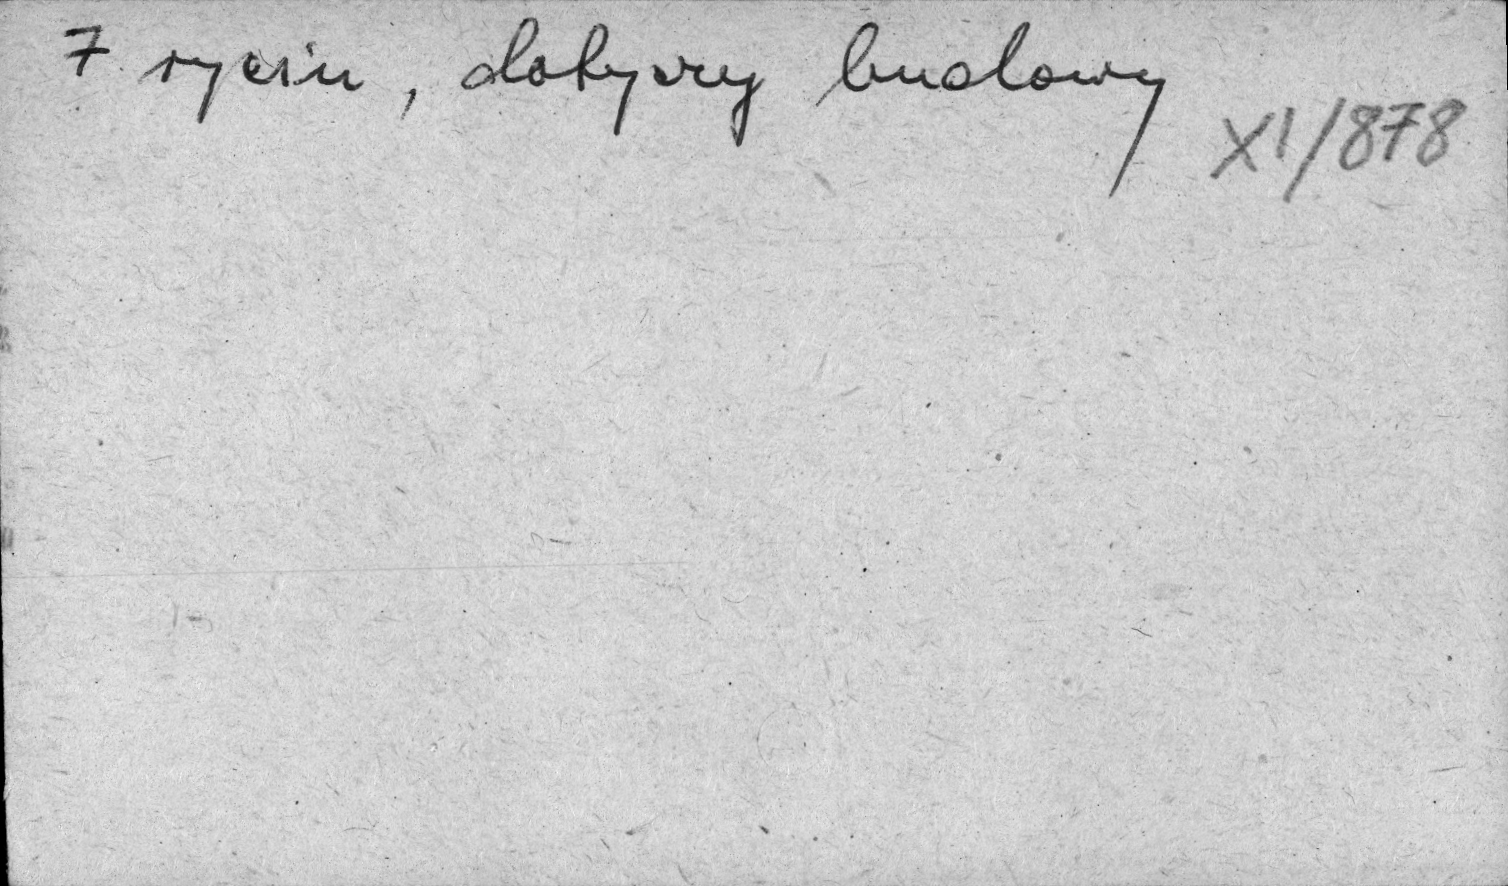 7 rycin, dotyczy budowy
XI/878